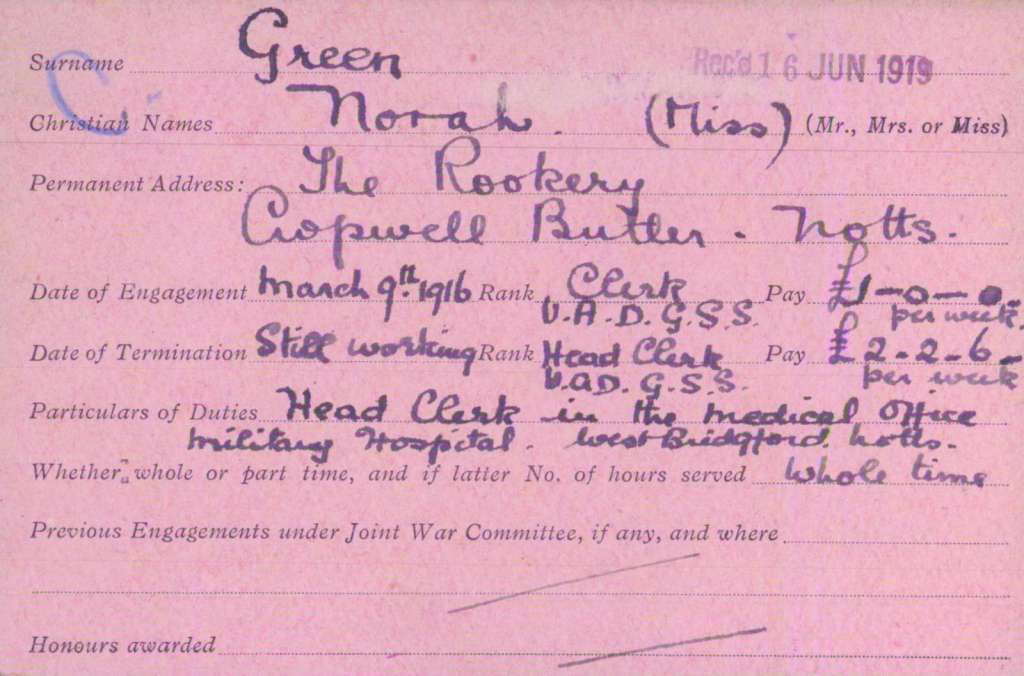 Surname Green Rec'd 16 JUN 1919
Christian Names Norah. (Miss) (Mr., Mrs. or Miss)
Permanent Address: The Rookery
Cropwell Butler. Notts.
Date of Engagement March 9th. 1916 Rank Clerk Pay £1-0-0.
V.A.D. G.S.S. per week.
Date of Termination Still working Rank Head Clerk Pay £2-2-6-
V.A.D. G.S.S. per week
Particulars of Duties Head Clerk in the Medical Office
Military Hospital. West Bridgford. Notts.
Whether whole or part time, and if latter No. of hours served Whole time
Previous Engagements under Joint War Committee, if any, and where
Honours awarded